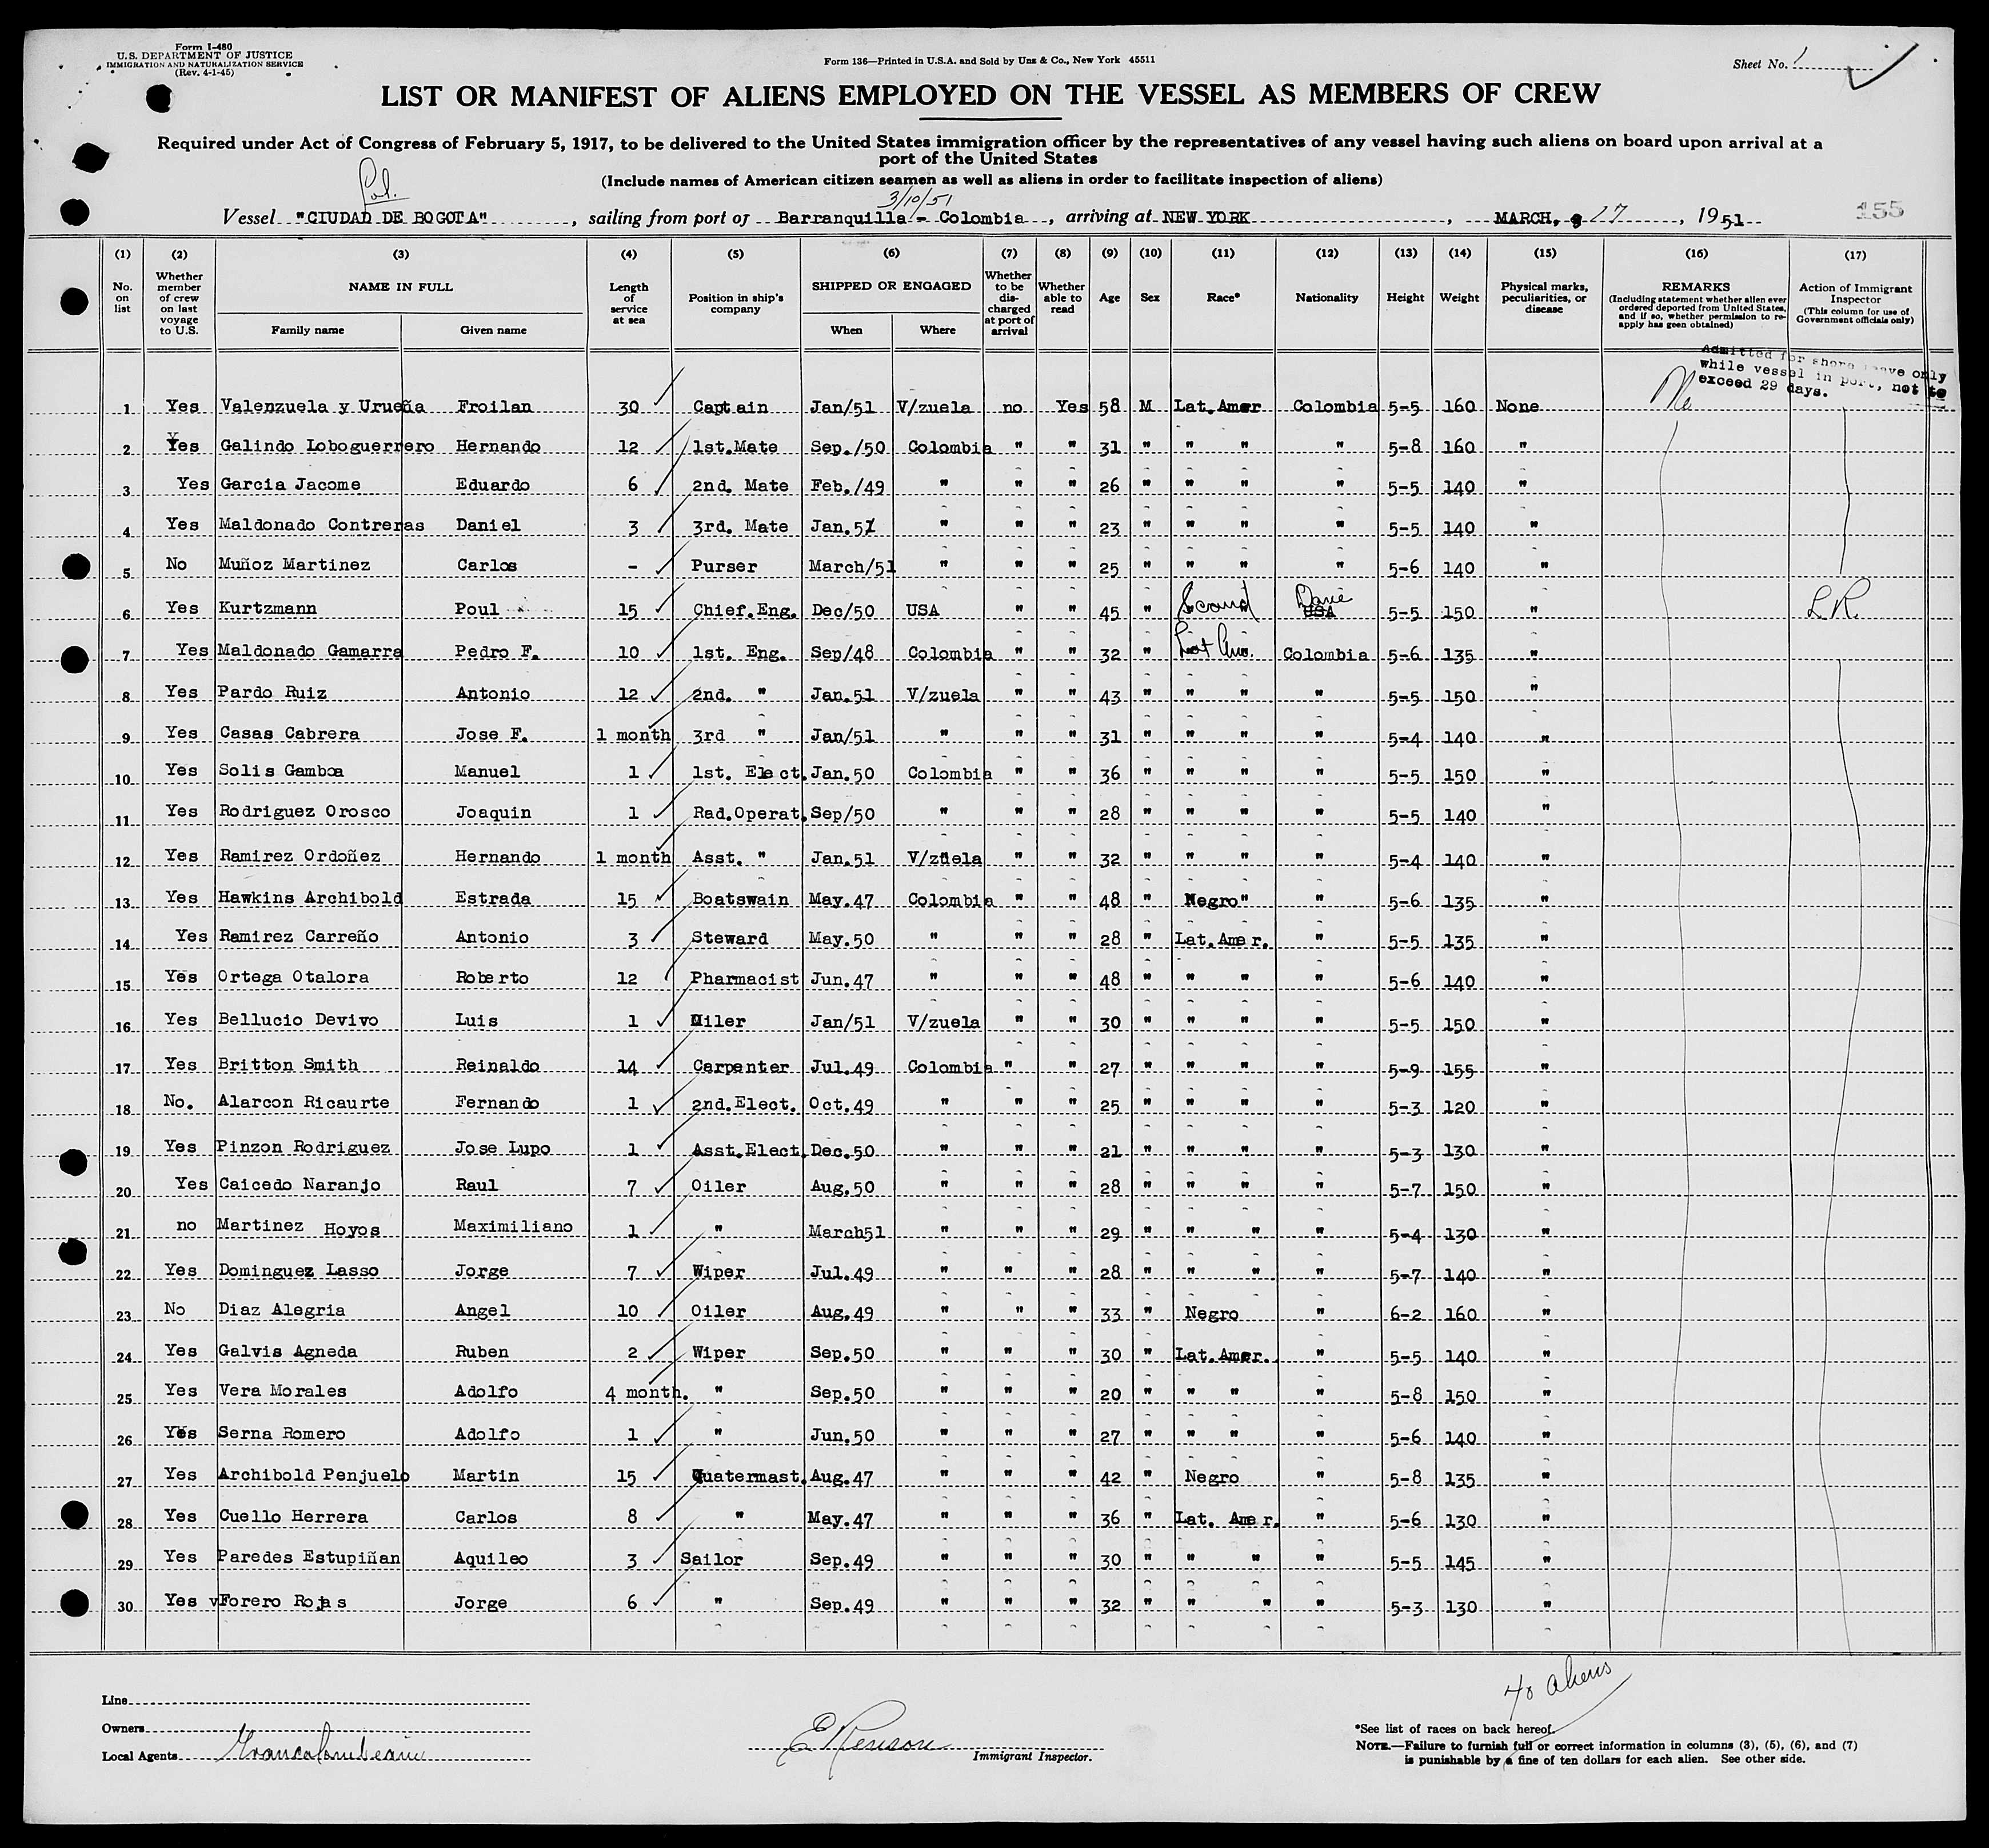 Form I-480
U.S. DEPARTMENT OF JUSTICE
IMMIGRATION AND NATURALIZATION SERVICE
(Rev. 4-1-45)
Form 136—Printed in U.S.A. and Sold by Unz & Co., New York 45511
Sheet No. 1
LIST OR MANIFEST OF ALIENS EMPLOYED ON THE VESSEL AS MEMBERS OF CREW
Required under Act of Congress of February 5, 1917, to be delivered to the United States immigration officer by the representatives of any vessel having such aliens on board upon arrival at a
port of the United States
(Include names of American citizen seamen as well as aliens in order to facilitate inspection of aliens)
Col.
3/10/51
Vessel "CIUDAD DE BOGOTA", sailing from port of Barranquilla - Colombia, arriving at NEW YORK, MARCH, 17, 1951
155
(1) (2) (3) (4) (5) (6) (7) (8) (9) (10) (11) (12) (13) (14) (15) (16) (17)
No. on list
Whether member of crew on last voyage to U.S.
NAME IN FULL
Family name
Given name
Length of service at sea
Position in ship's company
SHIPPED OR ENGAGED
When
Where
Whether to be discharged at port of arrival
Whether able to read
Age
Sex
Race*
Nationality
Height
Weight
Physical marks, peculiarities, or disease
REMARKS
(Including statement whether alien ever ordered deported from United States, and if so, whether permission to re-apply has geen obtained)
Action of Immigrant Inspector
(This column for use of Government officials only)
Admitted for shore leave only
while vessel in port, not to
exceed 29 days.
1 Yes Valenzuela y Urueña Froilan 30 Captain Jan/51 V/zuela no Yes 58 M Lat.Amer Colombia 5-5 160 None
2 Yes Galindo Loboguerrero Hernando 12 1st.Mate Sep./50 Colombia " " 31 " " " " 5-8 160 "
3 Yes Garcia Jacome Eduardo 6 2nd. Mate Feb./49 " " " 26 " " " " 5-5 140 "
4 Yes Maldonado Contreras Daniel 3 3rd. Mate Jan.51 " " " 23 " " " " 5-5 140 "
5 No Muñoz Martinez Carlos - Purser March/51 " " " 25 " " " " 5-6 140 "
6 Yes Kurtzmann Poul 15 Chief.Eng. Dec/50 USA " " 45 " Scand Dane USA 5-5 150 " LR.
7 Yes Maldonado Gamarra Pedro F. 10 1st. Eng. Sep/48 Colombia " " 32 " Lat Am. Colombia 5-6 135 "
8 Yes Pardo Ruiz Antonio 12 2nd. " Jan.51 V/zuela " " 43 " " " " 5-5 150 "
9 Yes Casas Cabrera Jose F. 1 month 3rd " Jan/51 " " " 31 " " " " 5-4 140 "
10 Yes Solis Gamboa Manuel 1 1st. Elect. Jan.50 Colombia " " 36 " " " " 5-5 150 "
11 Yes Rodriguez Orosco Joaquin 1 Rad.Operat. Sep/50 " " " 28 " " " " 5-5 140 "
12 Yes Ramirez Ordoñez Hernando 1 month Asst. " Jan.51 V/zuela " " 32 " " " " 5-4 140 "
13 Yes Hawkins Archibold Estrada 15 Boatswain May.47 Colombia " " 48 " Negro" " 5-6 135 "
14 Yes Ramirez Carreño Antonio 3 Steward May.50 " " " 28 " Lat.Amer. " 5-5 135 "
15 Yes Ortega Otalora Roberto 12 Pharmacist Jun.47 " " " 48 " " " " 5-6 140 "
16 Yes Bellucio Devivo Luis 1 Oiler Jan/51 V/zuela " " 30 " " " " 5-5 150 "
17 Yes Britton Smith Reinaldo 14 Carpenter Jul.49 Colombia " " 27 " " " " 5-9 155 "
18 No. Alarcon Ricaurte Fernando 1 2nd.Elect. Oct.49 " " " 25 " " " " 5-3 120 "
19 Yes Pinzon Rodriguez Jose Lupo 1 Asst.Elect. Dec.50 " " " 21 " " " " 5-3 130 "
20 Yes Caicedo Naranjo Raul 7 Oiler Aug.50 " " " 28 " " " " 5-7 150 "
21 no Martinez Hoyos Maximiliano 1 " March51 " " " 29 " " " " 5-4 130 "
22 Yes Dominguez Lasso Jorge 7 Wiper Jul.49 " " " 28 " " " " 5-7 140 "
23 No Diaz Alegria Angel 10 Oiler Aug.49 " " " 33 " Negro " 6-2 160 "
24 Yes Galvis Agneda Ruben 2 Wiper Sep.50 " " " 30 " Lat.Amer. " 5-5 140 "
25 Yes Vera Morales Adolfo 4 month. " Sep.50 " " " 20 " " " " 5-8 150 "
26 Yes Serna Romero Adolfo 1 " Jun.50 " " " 27 " " " " 5-6 140 "
27 Yes Archibold Penjuelo Martin 15 Quatermast. Aug.47 " " " 42 " Negro " 5-8 135 "
28 Yes Cuello Herrera Carlos 8 " May.47 " " " 36 " Lat. Amer. " 5-6 130 "
29 Yes Paredes Estupiñan Aquileo 3 Sailor Sep.49 " " " 30 " " " " 5-5 145 "
30 Yes vForero Rojas Jorge 6 " Sep.49 " " " 32 " " " " 5-3 130 "
40 aliens
Line
Owners
Local Agents
Immigrant Inspector.
*See list of races on back hereof.
NOTE.—Failure to furnish full or correct information in columns (3), (5), (6), and (7)
is punishable by a fine of ten dollars for each alien. See other side.